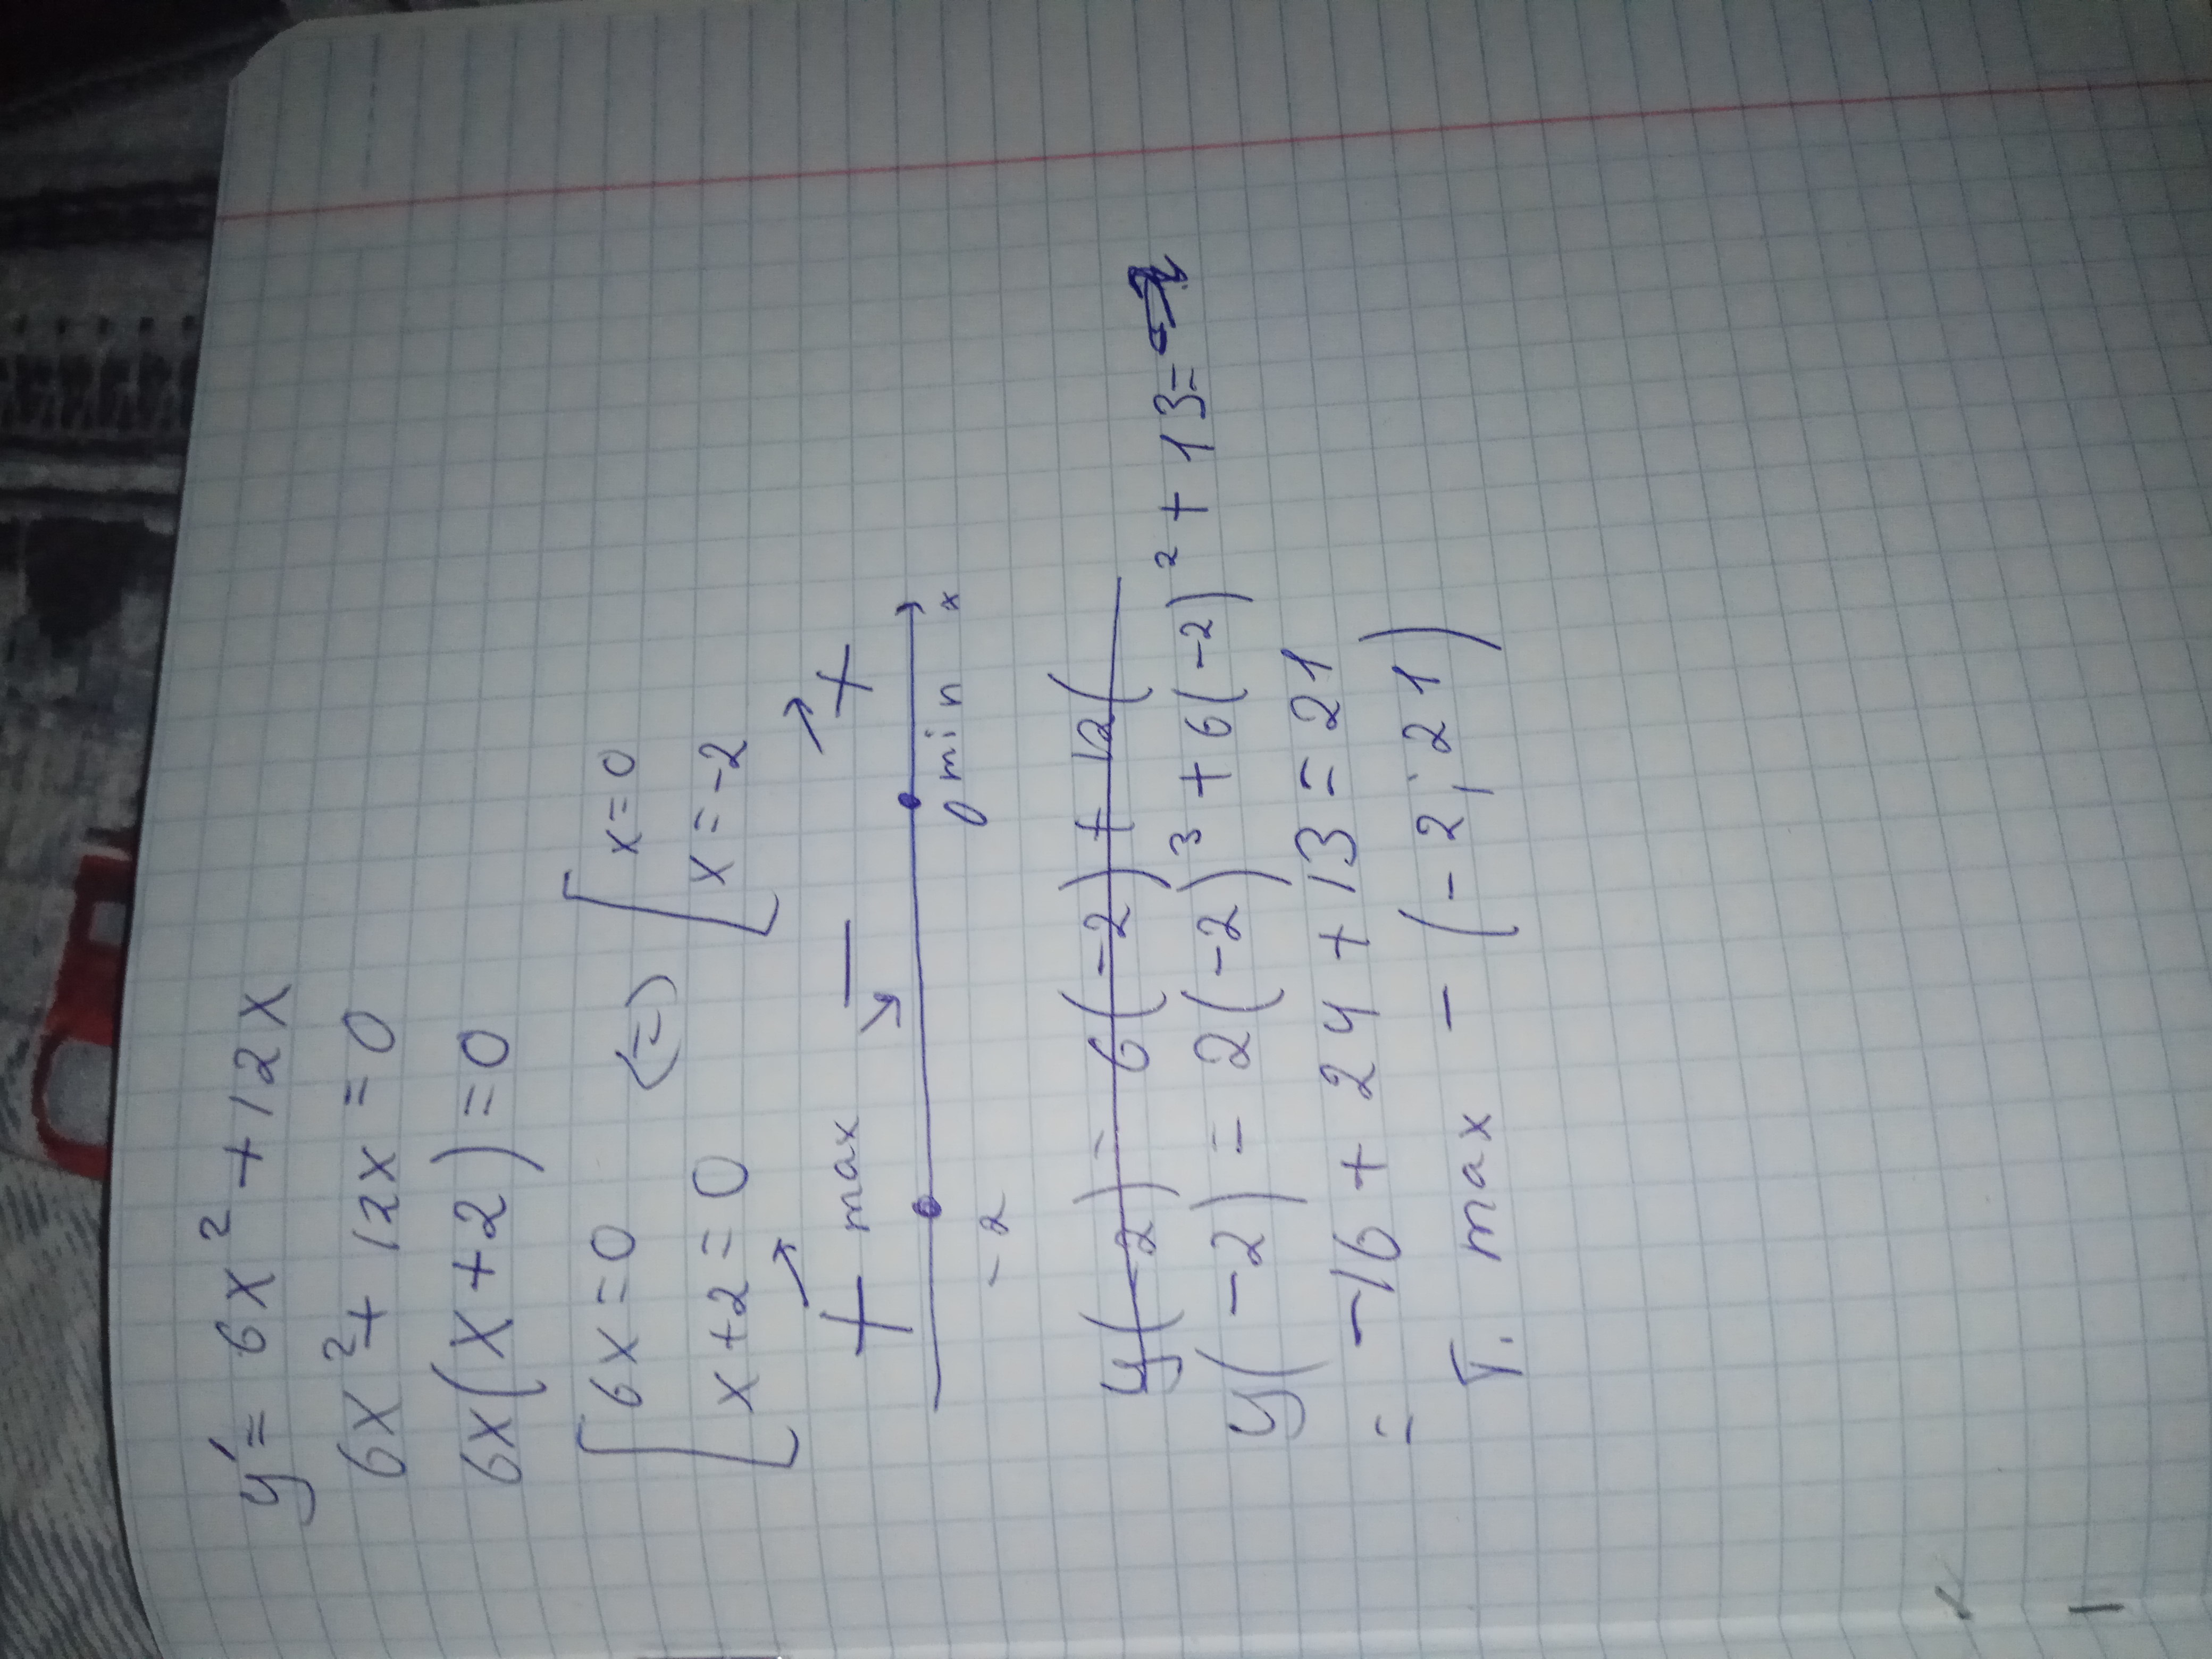 y' = 6x² + 12x
6x² + 12x = 0
6x(x+2) = 0
[ 6x = 0 (=) [ x = 0
x + 2 = 0 x = -2
+ ↗ max ↘ — ↗ +
-2 0 min x
y(-2) = 6(-2) + 12(
y(-2) = 2(-2)³ + 6(-2)² + 13 =
= -16 + 24 + 13 = 21
T. max - (-2; 21)